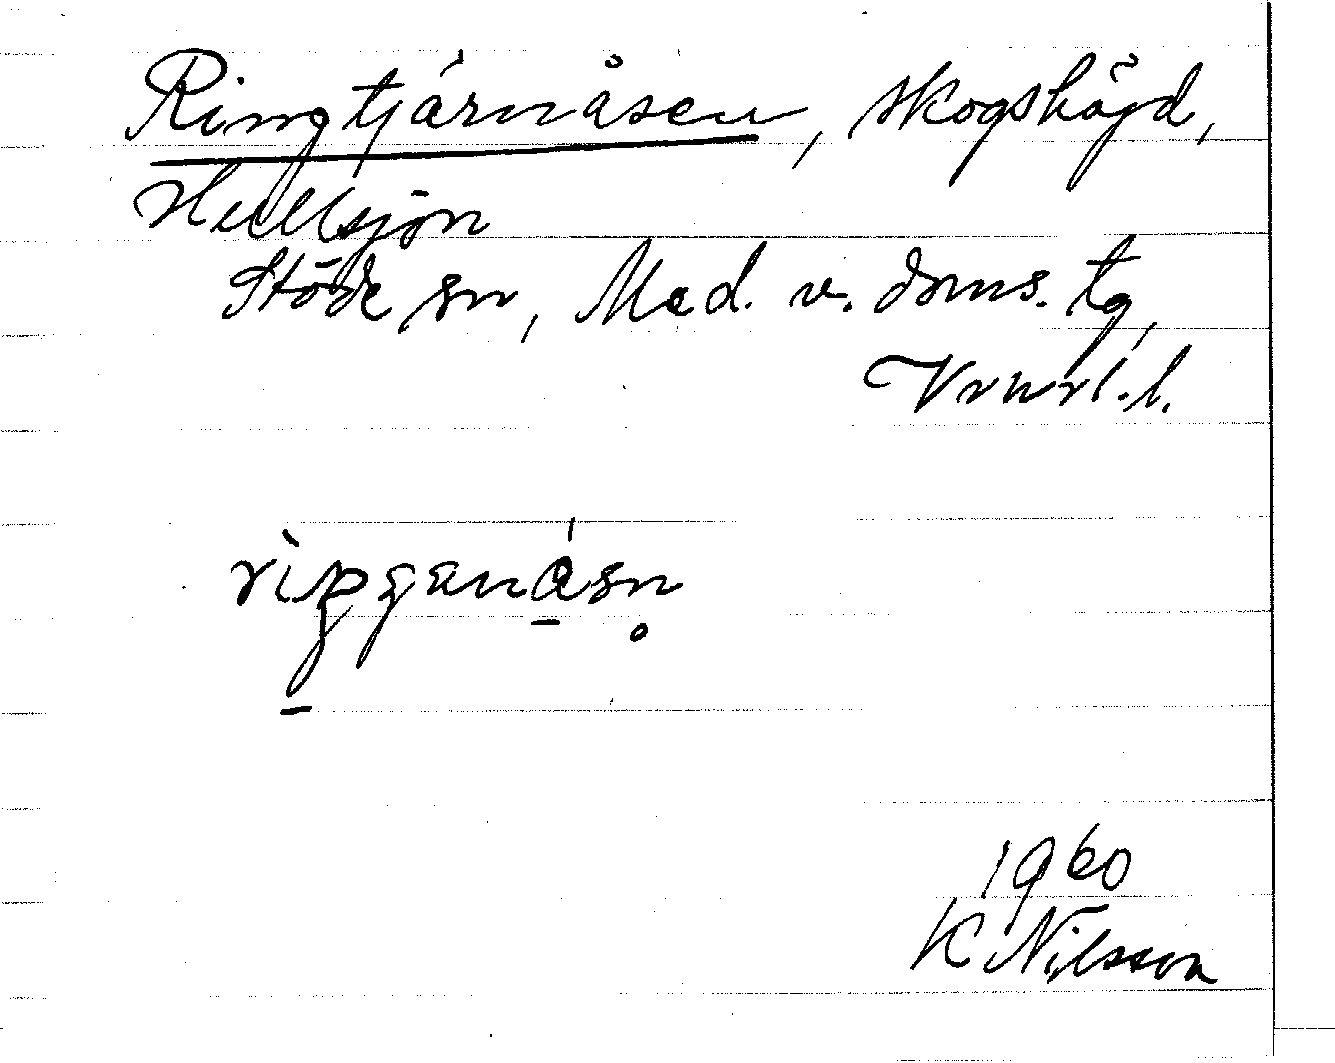 Ringtjärnåsen, skogshöjd,
Hullsjön
Stöde sn, Med. v. doms. tg,
Vrnrl. l.
1960
K Nilsson